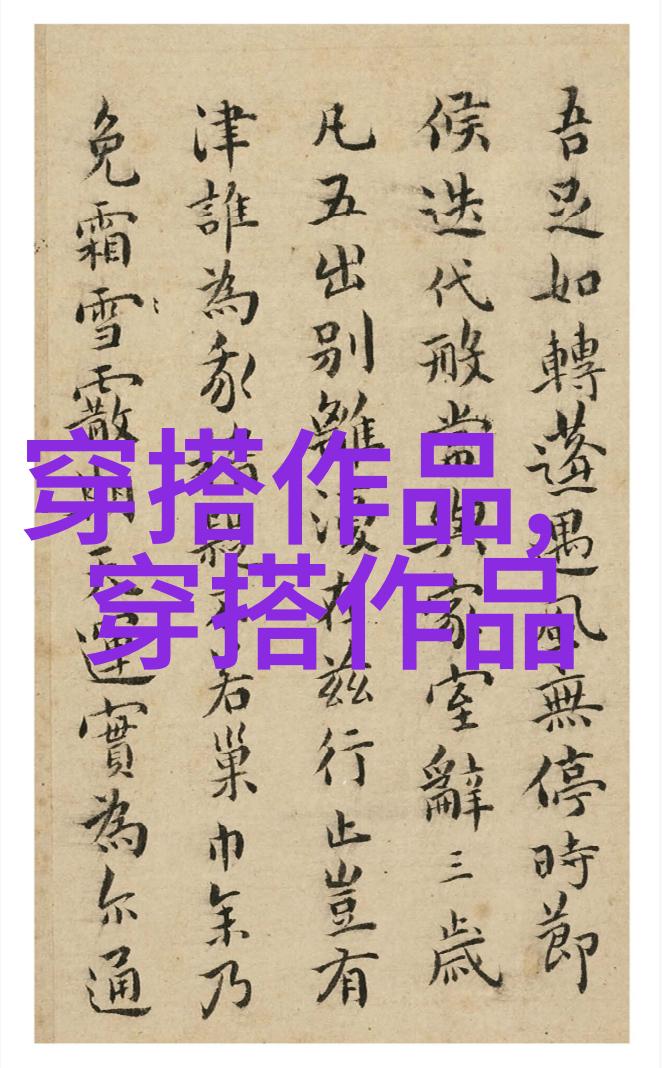 吾足如轉蓬遇風無停時節
候迭代般當與家室辭三歲
凡五出別離復在茲行止豈有
津誰為
右巢巾年乃
免霜雪
運實為尔通
穿搭作品,
穿搭作品